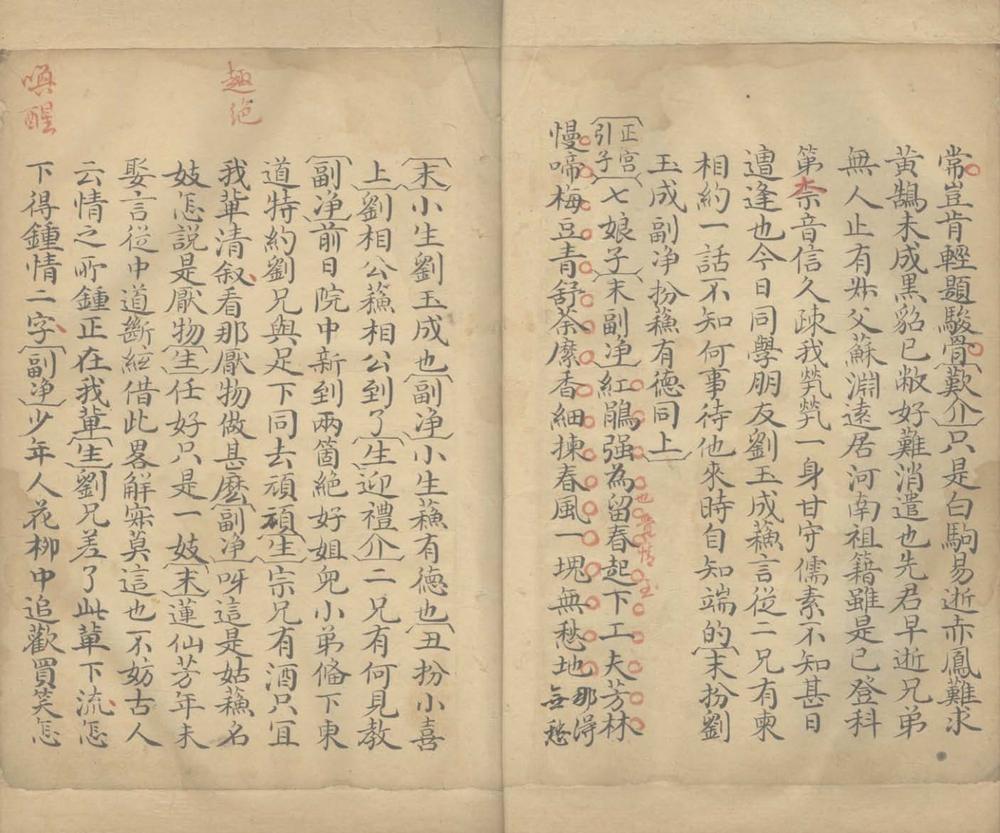 常豈肯輕題駿骨歎介只是白駒易逝赤鳳難求
黃鵠未成黑貂已敝好難消遣也先君早逝兄弟
無人止有外父蘇淵遠居河南祖籍雖是已登科
第柰音信久疎我煢煢一身甘守儒素不知甚日
遭逢也今日同學朋友劉玉成蘓言從二兄有柬
相約一話不知何事待他來時自知端的末扮劉
玉成副净扮蘓有德同上
正宮
引子
七娘子末副净紅鵑强為留春起下工夫芳林
也費情
慢啼梅豆青舒荼縻香細揀春風一塊無愁地
那得
無愁
末小生劉玉成也副净小生蘓有德也丑扮小喜
上劉相公蘓相公到了生迎禮介二兄有何見教
副净前日院中新到兩箇絕好姐兒小弟偹下東
道特約劉兄與足下同去頑頑生宗兄有酒只宜
我軰清叙看那厭物做甚麽副净呀這是姑蘓名
妓怎説是厭物生任好只是一妓末蓮仙芳年未
娶言從中道斷絃借此畧解寂寞這也不妨古人
云情之所鍾正在我軰生劉兄差了此軰下流怎
下得鍾情二字副净少年人花柳中追歡買笑怎
趣絶
喚醒